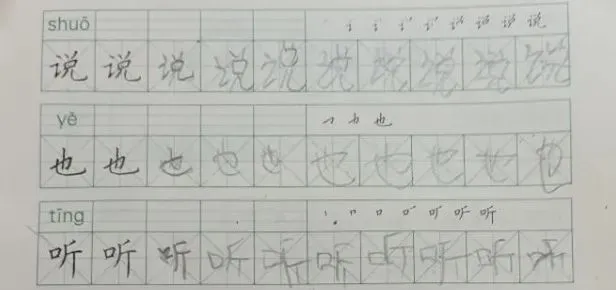 shuō
说 说 说 说 说 说 说 说 说 说
yě
也 也 也 也 也 也 也 也 也 也
tīng
听 听 听 听 听 听 听 听 听 听